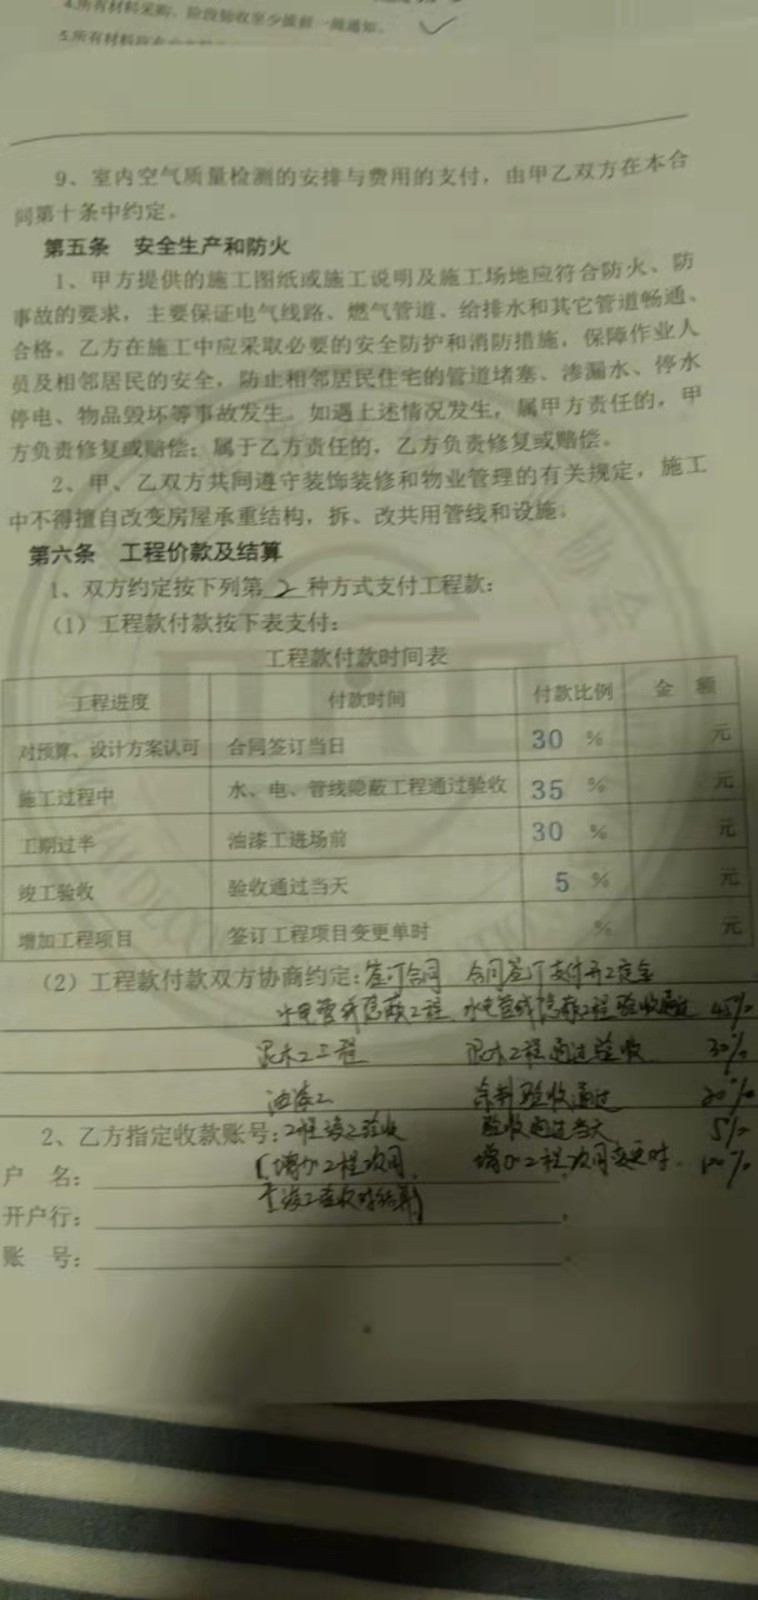 4.所有材料采购、阶段验收至少提前一周通知。
5.所有材料
9、室内空气质量检测的安排与费用的支付，由甲乙双方在本合
同第十条中约定。
第五条 安全生产和防火
1、甲方提供的施工图纸或施工说明及施工场地应符合防火、防
事故的要求，主要保证电气线路、燃气管道、给排水和其它管道畅通、
合格。乙方在施工中应采取必要的安全防护和消防措施，保障作业人
员及相邻居民的安全，防止相邻居民住宅的管道堵塞、渗漏水、停水
停电、物品毁坏等事故发生。如遇上述情况发生，属甲方责任的，甲
方负责修复或赔偿；属于乙方责任的，乙方负责修复或赔偿。
2、甲、乙双方共同遵守装饰装修和物业管理的有关规定，施工
中不得擅自改变房屋承重结构，拆、改共用管线和设施。
第六条 工程价款及结算
1、双方约定按下列第 2 种方式支付工程款：
（1）工程款付款按下表支付：
工程款付款时间表
工程进度 付款时间 付款比例 金 额
对预算、设计方案认可 合同签订当日 30 % 元
施工过程中 水、电、管线隐蔽工程通过验收 35 % 元
工期过半 油漆工进场前 30 % 元
竣工验收 验收通过当天 5 % 元
增加工程项目 签订工程项目变更单时 % 元
（2）工程款付款双方协商约定：签订合同 合同签订支付开工定金
水电管线隐蔽工程 水电管线隐蔽工程验收通过 45%
泥木工工程 泥木工程通过验收 30%
油漆工 涂料验收通过 20%
2、乙方指定收款账号：工程竣工验收 验收通过当天 5%
户 名： （增加工程项目 增加工程项目变更时 100%
开户行： 竣工验收时结算）
账 号：